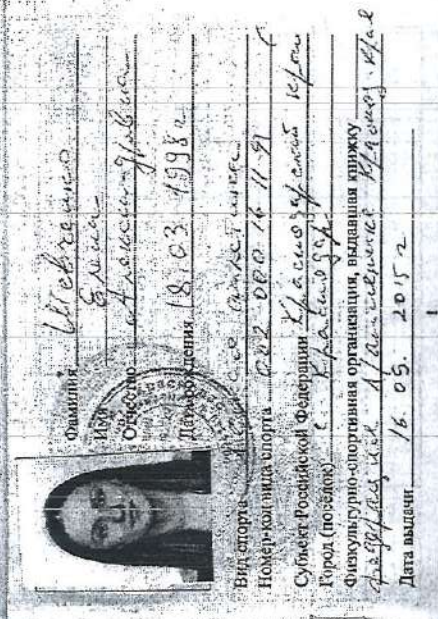 Фамилия Шевченко
Имя Елена
Отчество Александровна
Дата рождения 18.03.1998г
Вид спорта атлетика
Номер-код вида спорта 002 000 16 11 Я
Субъект Российской Федерации Краснодарский край
Город (поселок) г. Краснодар
Физкультурно-спортивная организация, выдавшая книжку
федерация л/атлетики Краснод. края
Дата выдачи 16.05. 2015г